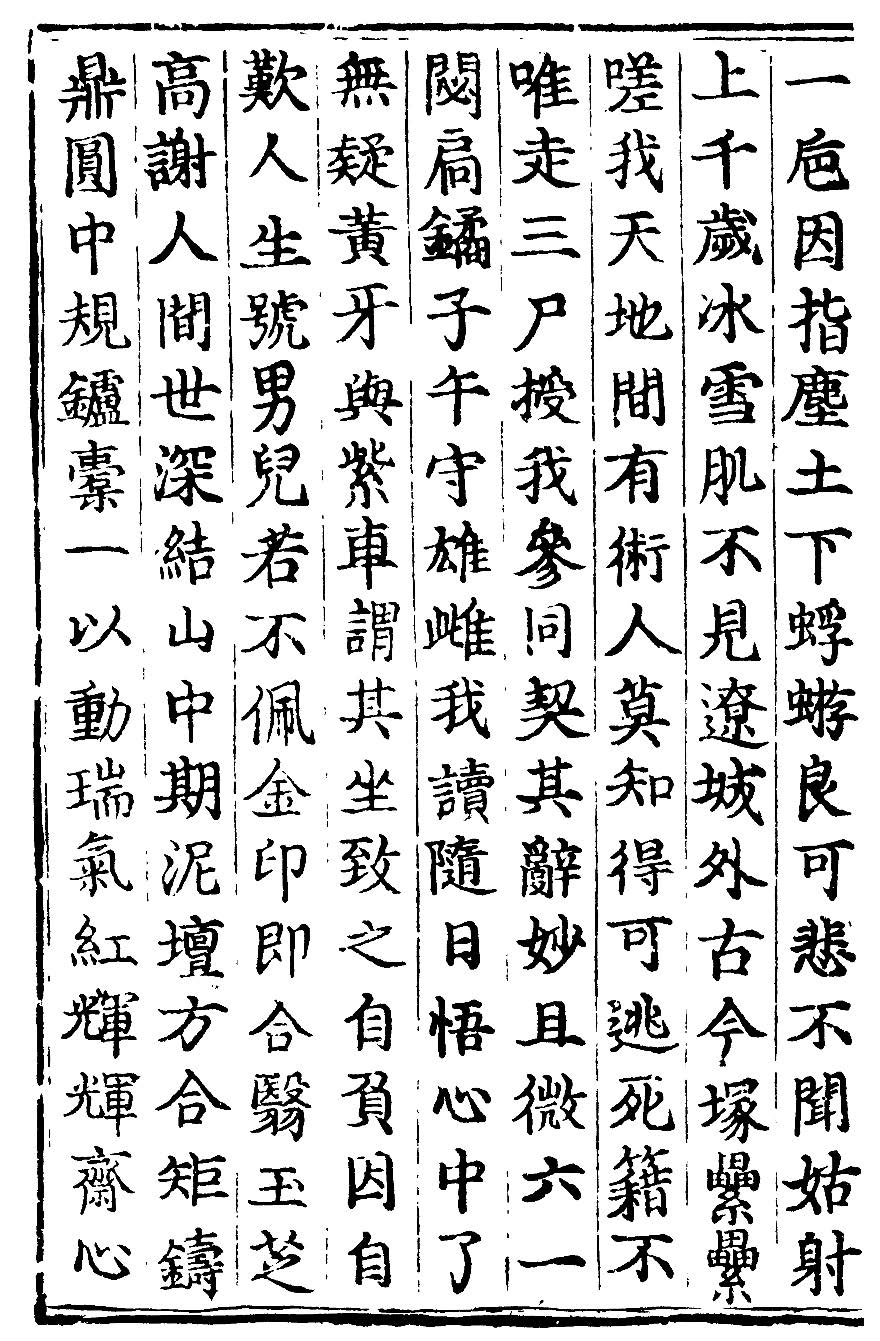 一巵因指塵土下蜉蝣良可悲不聞姑射
上千歲冰雪肌不見遼城外古今塚纍纍
嗟我天地間有術人莫知得可逃死籍不
唯走三尸授我參同契其辭妙且微六一
閟扃鐍子午守雄雌我讀隨日悟心中了
無疑黃牙與紫車謂其坐致之自負因自
歎人生號男兒若不佩金印即合翳玉芝
高謝人間世深結山中期泥壇方合矩鑄
鼎圓中規鑪橐一以動瑞氣紅輝輝齋心